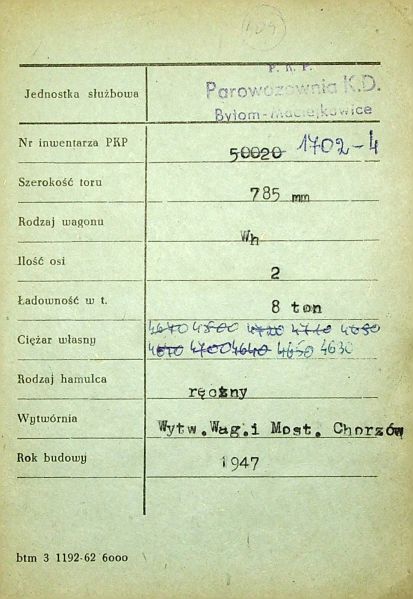 104
P. K. P.
Jednostka służbowa Parowozownia K.D.
Bytom-Maciejkowice
Nr inwentarza PKP 50020 1702-4
Szerokość toru 785 mm
Rodzaj wagonu Wh
Ilość osi 2
Ładowność w t. 8 ton
4670 4800 4720 4710 4680
Ciężar własny 4670 4700 4640 4650 4630
Rodzaj hamulca ręczny
Wytwórnia Wytw.Wag.i Most. Chorzów
Rok budowy 1947
btm 3 1192-62 6000